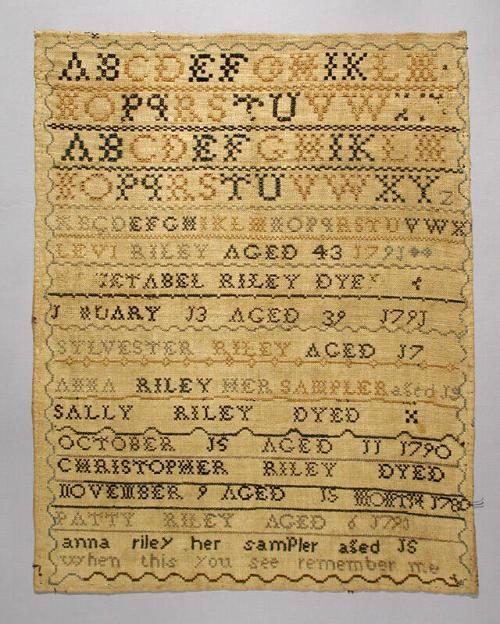 ABCDEFGHIKLM
NOPQRSTUVWX
ABCDEFGHIKLM
NOPQRSTUVWXYZ
ABCDEFGHIKLMNOPQRSTUVWX
LEVI RILEY AGED 43 1791
RILEY DYED
13 AGED 39 1791
SYLVESTER RILEY AGED 17
ANNA RILEY HER SAMPLER aged 15
SALLY RILEY DYED
OCTOBER 15 AGED 11 1790
CHRISTOPHER RILEY DYED
NOVEMBER 9 AGED 15 MONTH
PATTY RILEY AGED 6 1791
anna riley her sampler aged 15
when this you see remember me